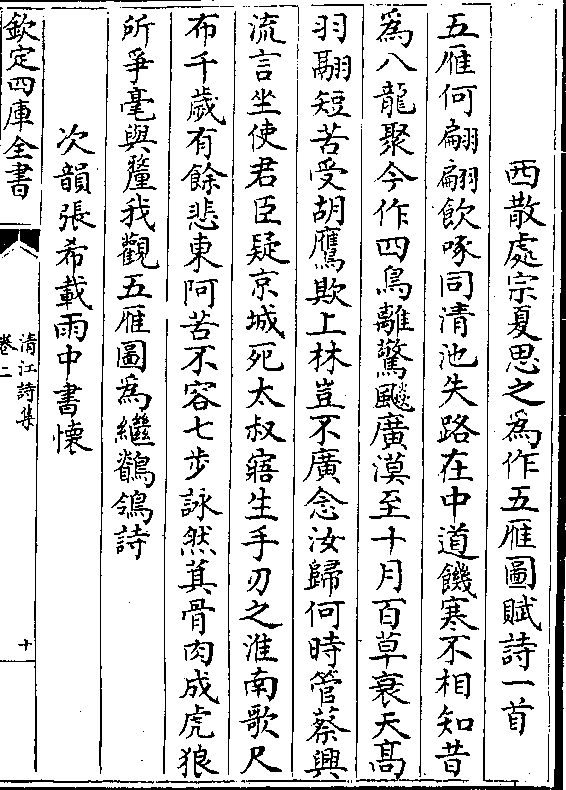 西散處宗夏思之爲作五雁圖賦詩一首
五雁何翩翩飲啄同清池失路在中道饑寒不相知昔
爲八龍聚今作四鳥離驚飇廣漠至十月百草衰天髙
羽翮短苦受胡鷹欺上林豈不廣念汝歸何時管蔡興
流言坐使君臣疑京城死太叔寤生手刃之淮南歌尺
布千歲有餘悲東阿苦不容七步詠然萁骨肉成虎狼
所爭毫與釐我觀五雁圖爲繼鶺鴒詩
次韻張希載雨中書懷
欽定四庫全書
清江詩集
卷二
十